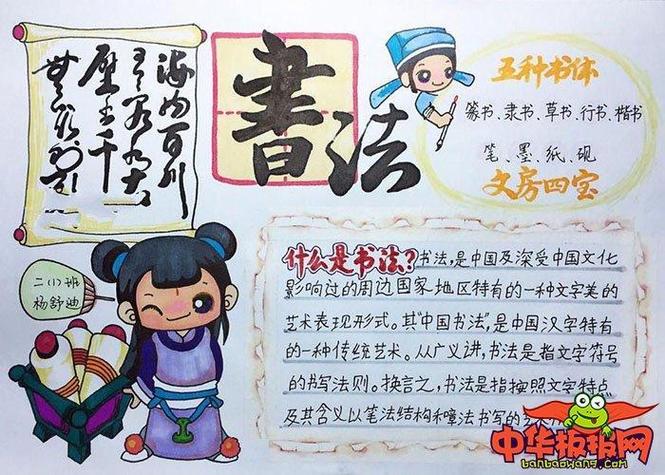 海内百川
書法
五种书体
篆书、隶书、草书、行书、楷书
笔、墨、纸、砚
文房四宝
二(1)班
杨舒迪
什么是书法?书法,是中国及深受中国文化
影响过的周边国家地区特有的一种文字美的
艺术表现形式。其"中国书法",是中国汉字特有
的一种传统艺术。从广义讲,书法是指文字符号
的书写法则。换言之,书法是指按照文字特点
及其含义以笔法结构和法书写的
中华板报网
banbaowang.com